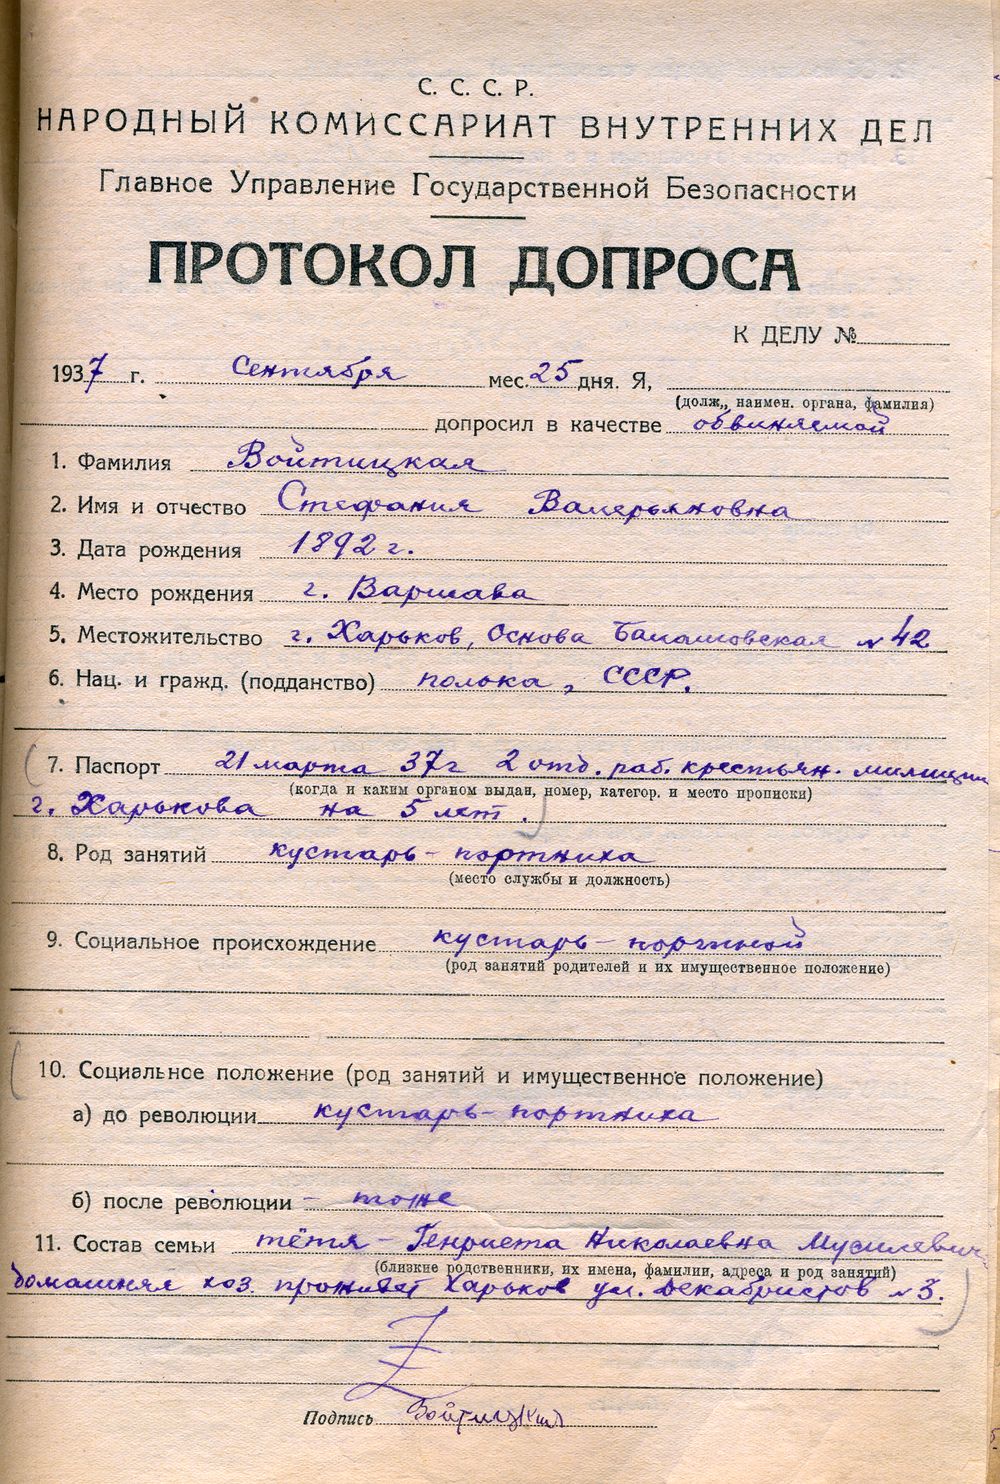 С. С. С. Р.
НАРОДНЫЙ КОМИССАРИАТ ВНУТРЕННИХ ДЕЛ
Главное Управление Государственной Безопасности
ПРОТОКОЛ ДОПРОСА
К ДЕЛУ №
1937 г. Сентября мес. 25 дня. Я,
(долж., наимен. органа, фамилия)
допросил в качестве обвиняемой
1. Фамилия Войтицкая
2. Имя и отчество Стефания Валерьяновна
3. Дата рождения 1892 г.
4. Место рождения г. Варшава
5. Местожительство г. Харьков, Основа Балашовская № 42
6. Нац. и гражд. (подданство) полька, СССР.
7. Паспорт 21 марта 37 г 2 отд. раб. крестьян. милиции
(когда и каким органом выдан, номер, категор. и место прописки)
г. Харькова на 5 лет.
8. Род занятий кустарь - портниха
(место службы и должность)
9. Социальное происхождение кустарь - портной
(род занятий родителей и их имущественное положение)
10. Социальное положение (род занятий и имущественное положение)
а) до революции кустарь - портниха
б) после революции - тоже
11. Состав семьи тётя - Генриета Николаевна
(близкие родственники, их имена, фамилии, адреса и род занятий)
домашняя хоз. проживает Харьков ул. Декабристов № 3.
Подпись Войтицкая